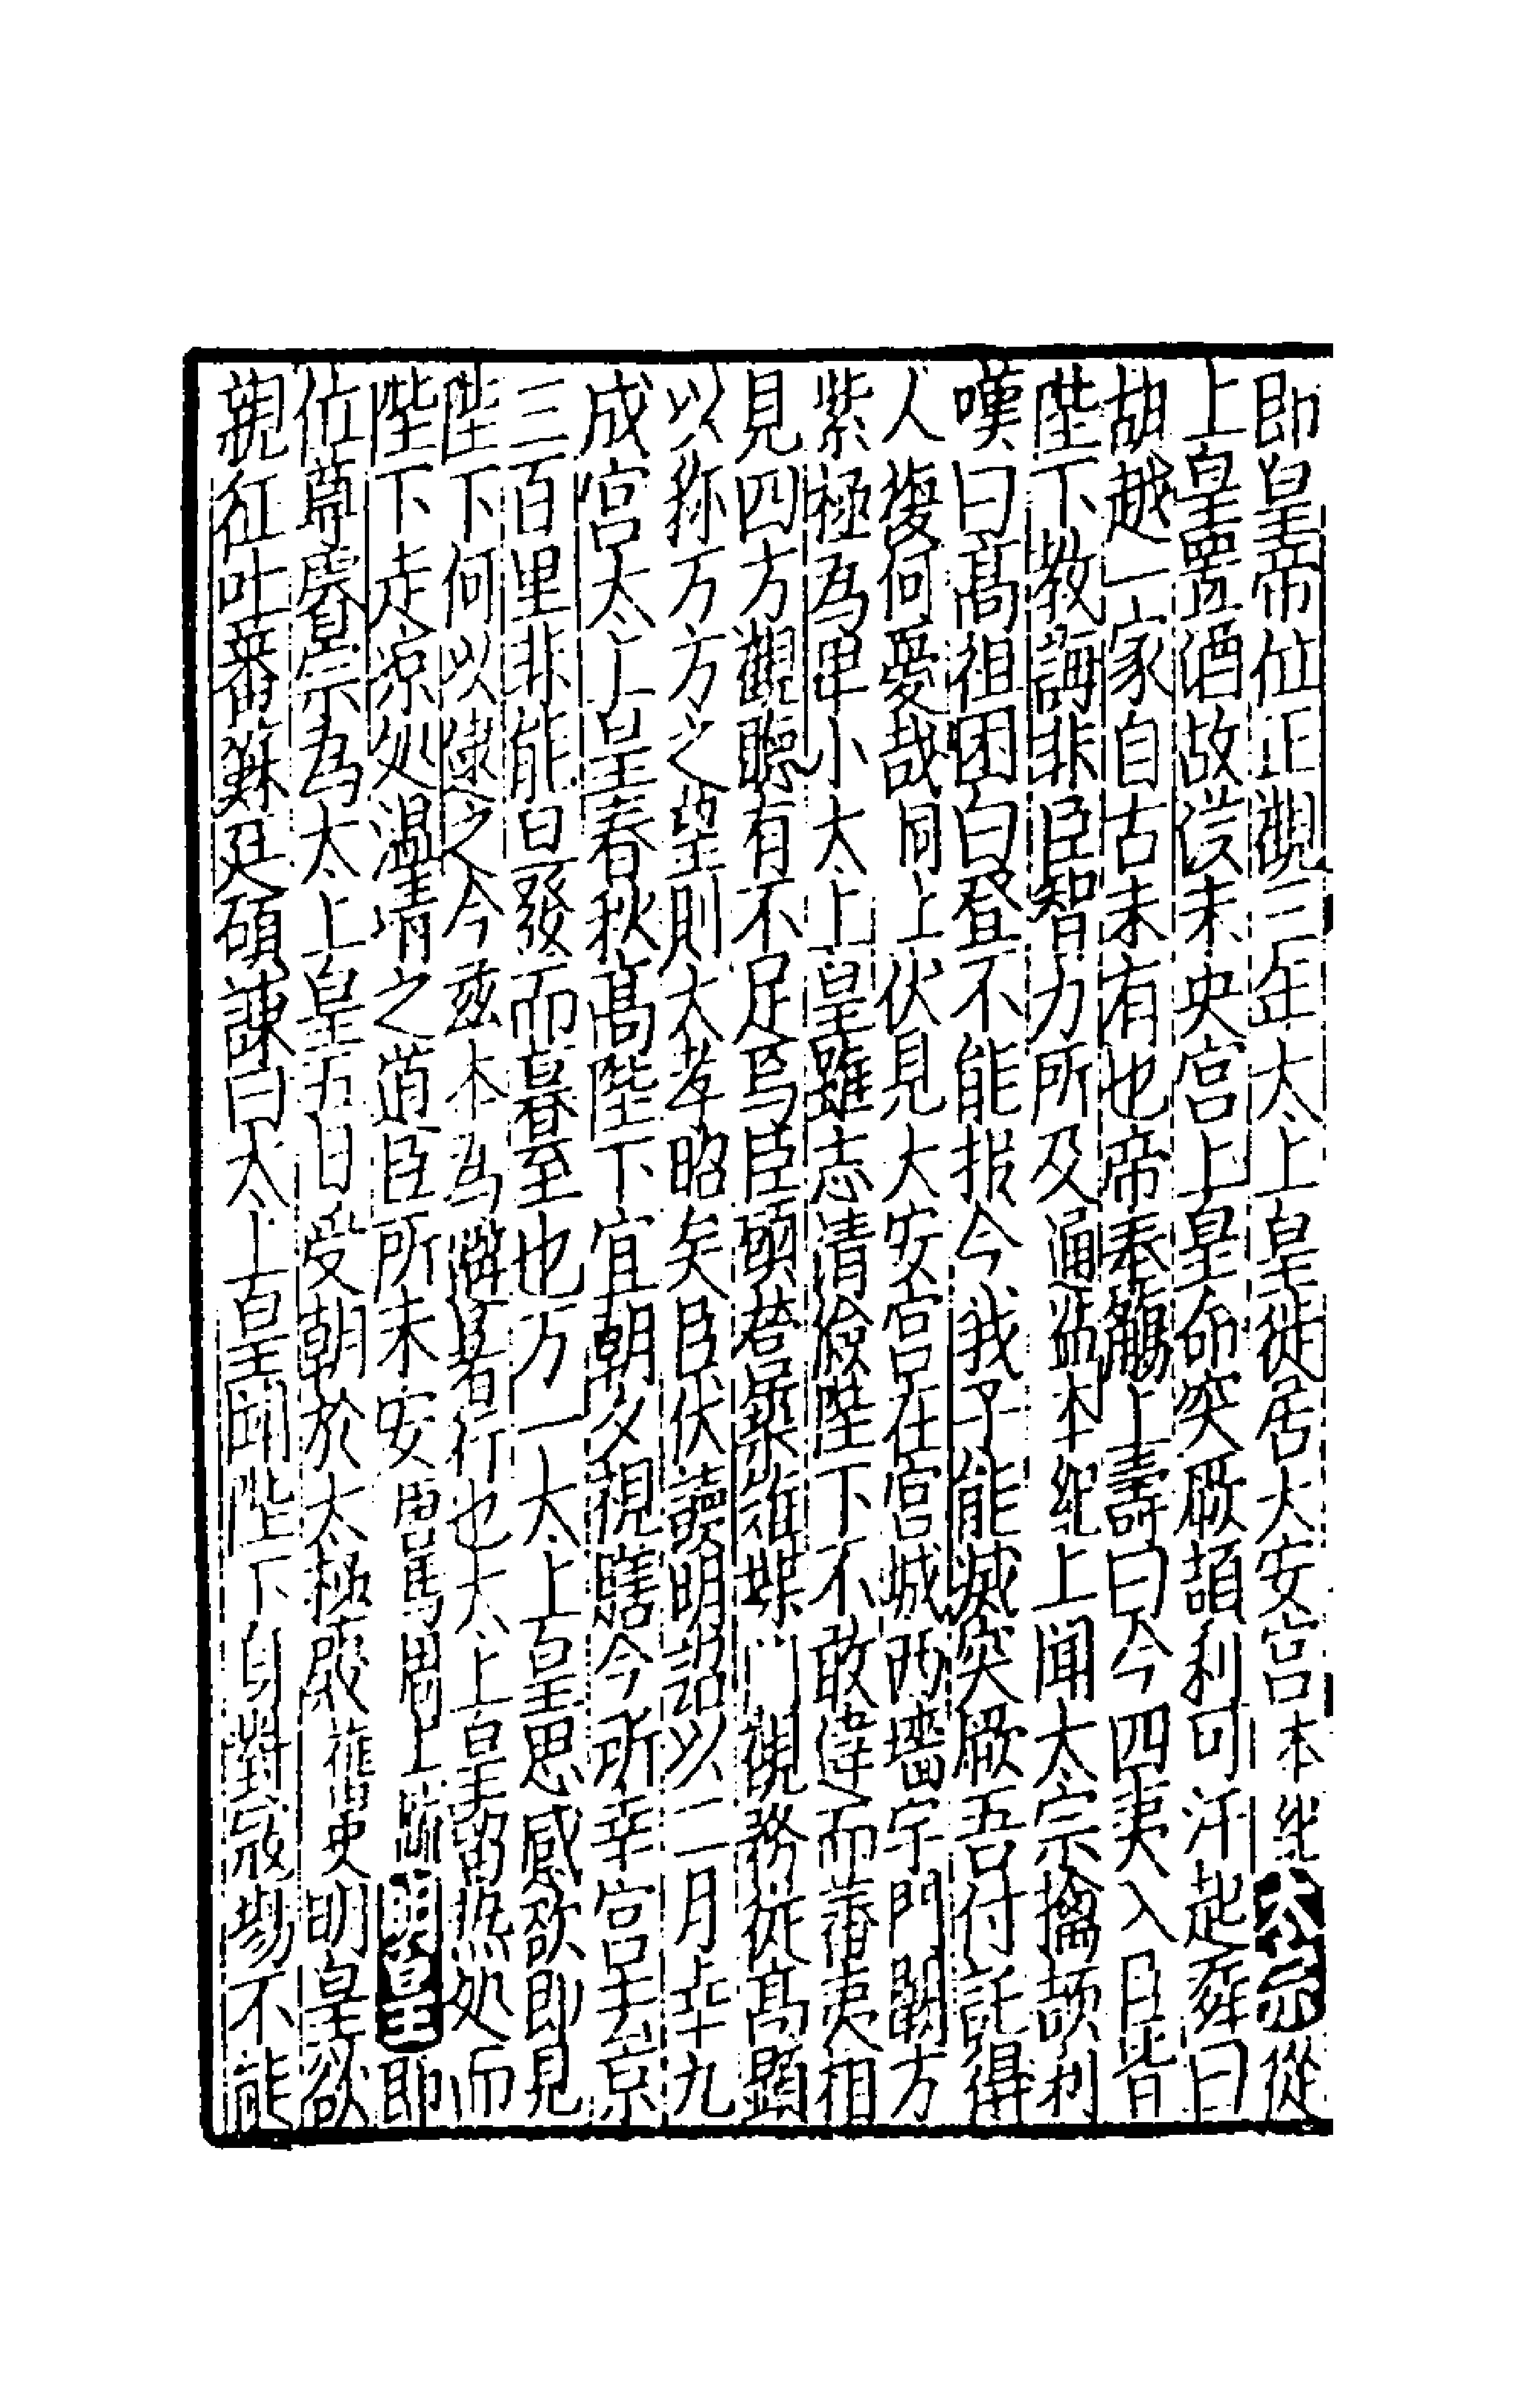 即皇帝位正觀三年太上皇徙居大安宮本紀太宗從
上皇置酒故漢未央宮上皇命突厥頡利可汗起舞曰
胡越一家自古未有也帝奉觴上壽曰今四夷入臣皆
陛下教誨非臣智力所及通鑑本紀上聞太宗擒頡利
嘆曰髙祖困白登不能报今我子能滅突厥吾付託得
人復何憂哉同上伏見大安宮在宮城西墻宇門闕方
紫極為卑小太上皇雖志清儉陛下不敢違而蕃夷相
見四方觀聽有不足焉臣願營雉堞門觀務從髙顯
以称万方之望則大孝昭矣臣伏讀明詔以二月幸九
成宮太上皇春秋髙陛下宜朝夕視膳今所幸宮去京
三百里非能旦發而暮至也万一太上皇思感欲即見
陛下何以逮之今兹本為避暑行也太上皇留热处而
陛下走凉处温凊之道臣所未安馬周上疏明皇即
位尊睿宗為太上皇五日受朝於太極殿舊史明皇欲
親征吐蕃蘇廷碩諫曰太上皇聞陛下身對寇塲不能